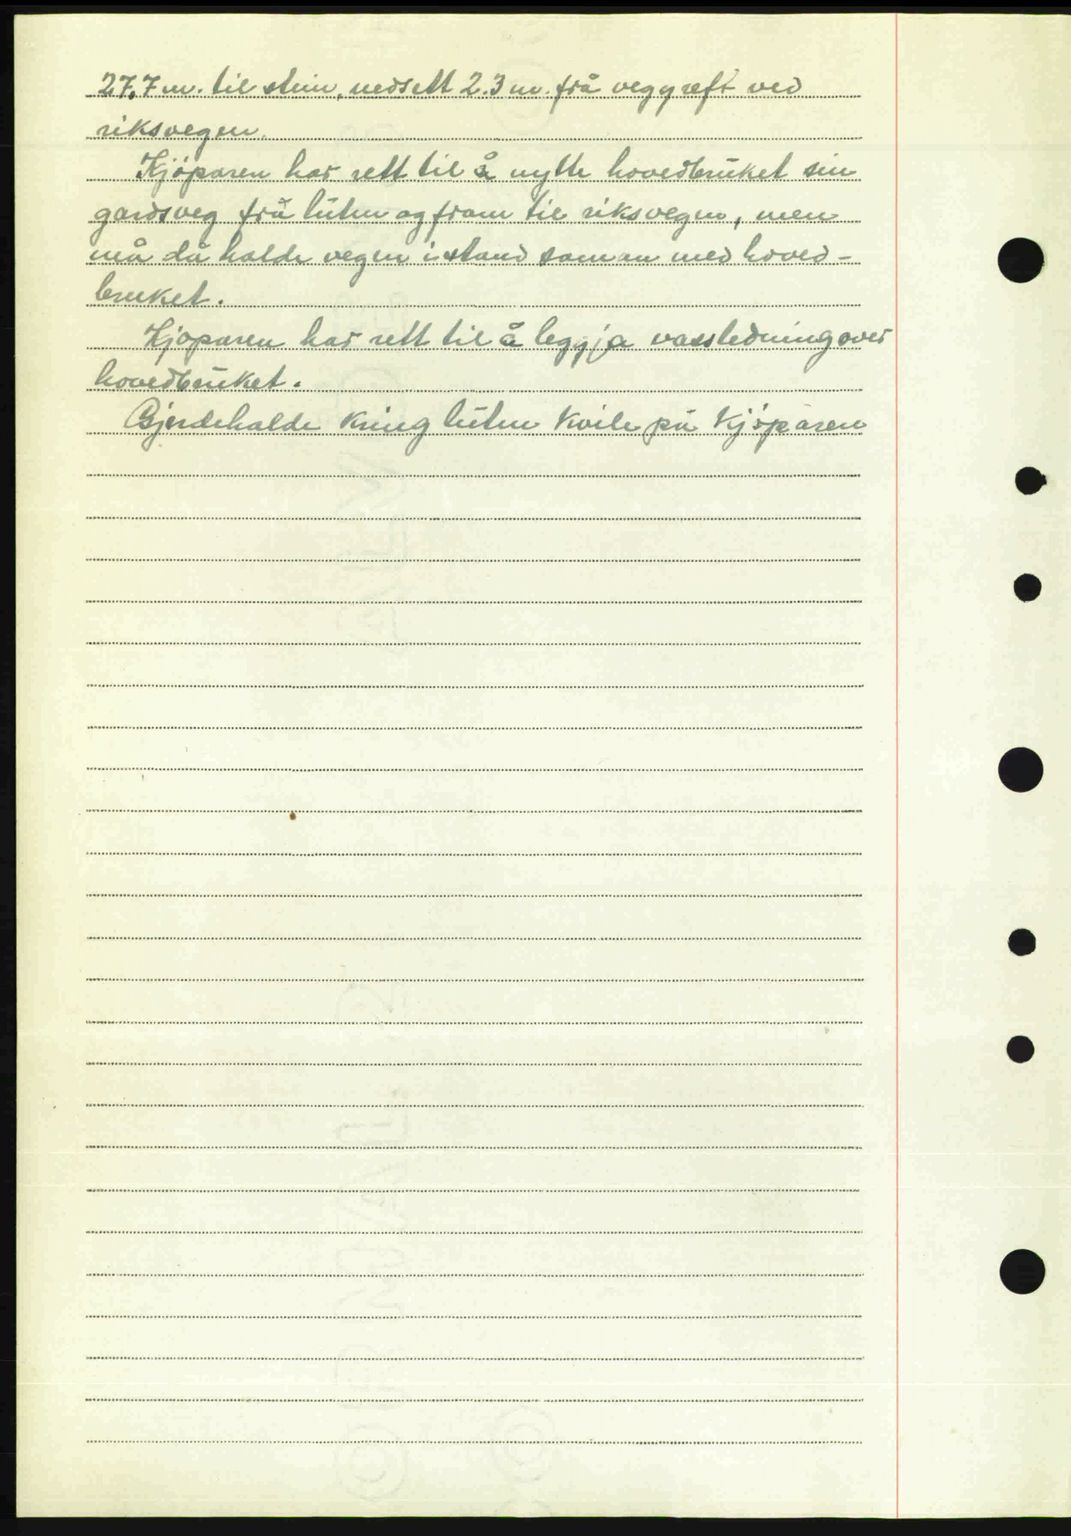 27,7 m. til stein, nedsett 2.3 m. frå veggreft ved
riksvegen.
Kjöparen har rett til å nytte hovedbruket sin
gardsveg frå luten og fram til riksvegen, men
må då halde vegen i stand saman med hoved-
bruket.
Kjöparen har rett til å leggja vassledning over
hovedbruket.
Gjerdehalde kring luten kvile på kjöparen